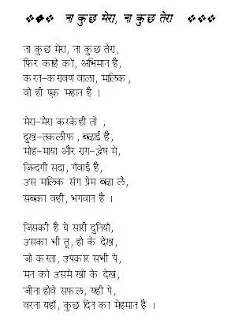 ❖❖❖ ना कुछ मेरा, ना कुछ तेरा ❖❖❖
ना कुछ मेरा, ना कुछ तेरा,
फिर काहे को, अभिमान है,
करन-करावण वाला, मालिक,
वो ही एक महान है ।
मेरा-मेरा करकेही तो ,
दुख-तकलीफ, बढाई है,
मोह-माया और राग-द्वेष मे,
जिन्दगी सदा, गँवाई है,
उस मालिक संग प्रेम बढा ले,
सबका वही, भगवान है ।
जिसकी है ये सारी दुनियाँ,
उसका भी तू, हो के देख,
जो करता, उपकार सभी पे,
मन को उसमे खो के देख,
जीना होवे सफल, यही पे,
वरना यहाँ, कुछ दिन का मेहमान है ।